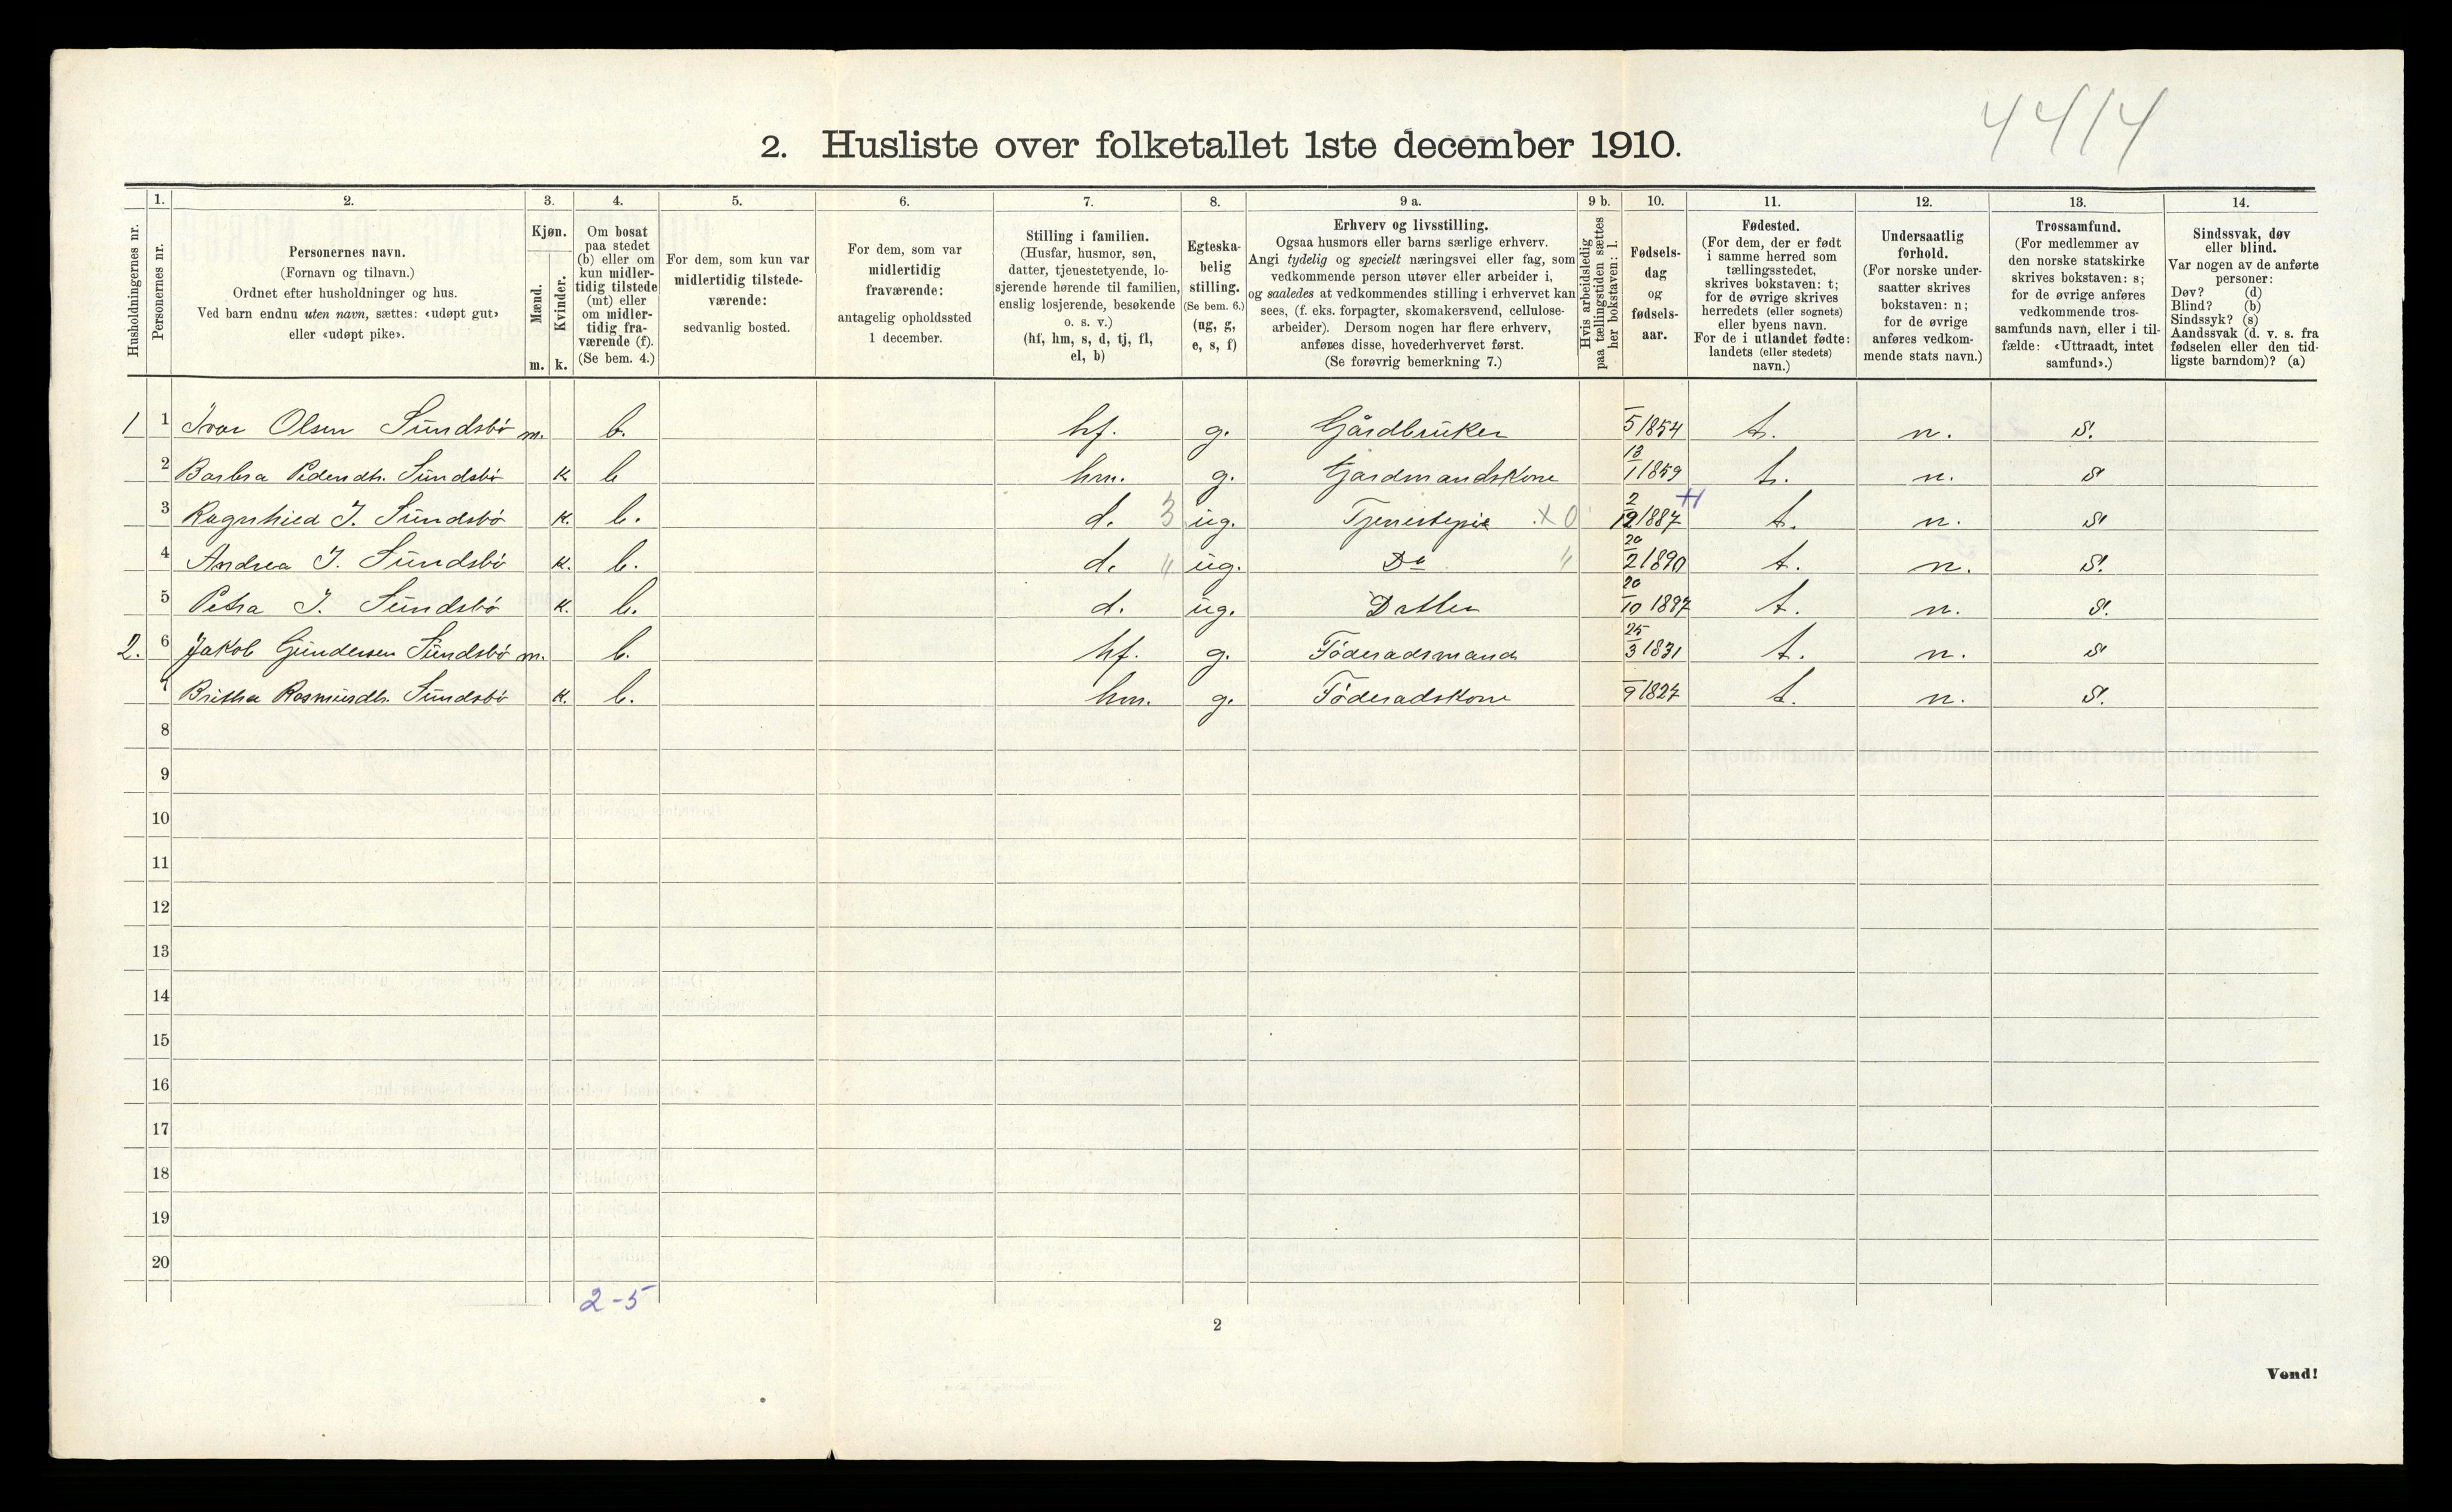 4414
2. Husliste over folketallet 1ste december 1910.
Husholdningernes nr.
1.
Personernes nr.
2.
Personernes navn.
(Fornavn og tilnavn.)
Ordnet efter husholdninger og hus.
Ved barn endnu uten navn, sættes: «udøpt gut»
eller «udøpt pike».
3.
Kjøn.
Mænd.
Kvinder.
m. k.
4.
Om bosat
paa stedet
(b) eller om
kun midler-
tidig tilstede
(mt) eller
om midler-
tidig fra-
værende (f).
(Se bem. 4.)
5.
For dem, som kun var
midlertidig tilstede-
værende:
sedvanlig bosted.
6.
For dem, som var
midlertidig
fraværende:
antagelig opholdssted
1 december.
7.
Stilling i familien.
(Husfar, husmor, søn,
datter, tjenestetyende, lo-
sjerende hørende til familien,
enslig losjerende, besøkende
o. s. v.)
(hf, hm, s, d, tj, fl,
el, b)
8.
Egteska-
belig
stilling.
(Se bem. 6.)
(ug, g,
e, s, f)
9 a.
Erhverv og livsstilling.
Ogsaa husmors eller barns særlige erhverv.
Angi tydelig og specielt næringsvei eller fag, som
vedkommende person utøver eller arbeider i,
og saaledes at vedkommendes stilling i erhvervet kan
sees, (f. eks. forpagter, skomakersvend, cellulose-
arbeider). Dersom nogen har flere erhverv,
anføres disse, hovederhvervet først.
(Se forøvrig bemerkning 7.)
9 b.
Hvis arbeidsledig
paa tællingstiden sættes
her bokstaven: l.
10.
Fødsels-
dag
og
fødsels-
aar.
11.
Fødested.
(For dem, der er født
i samme herred som
tællingsstedet,
skrives bokstaven: t;
for de øvrige skrives
herredets (eller sognets)
eller byens navn.
For de i utlandet fødte:
landets (eller stedets)
navn.)
12.
Undersaatlig
forhold.
(For norske under-
saatter skrives
bokstaven: n;
for de øvrige
anføres vedkom-
mende stats navn.)
13.
Trossamfund.
(For medlemmer av
den norske statskirke
skrives bokstaven: s;
for de øvrige anføres
vedkommende tros-
samfunds navn, eller i til-
fælde: «Uttraadt, intet
samfund».)
14.
Sindssvak, døv
eller blind.
Var nogen av de anførte
personer:
Døv? (d)
Blind? (b)
Sindssyk? (s)
Aandssvak (d. v. s. fra
fødselen eller den tid-
ligste barndom)? (a)
1 1 Ivar Olsen Sundsbö m. b. hf. g. Gårdbruker 5/1854 t. n. s.
2 Barbra Pedersdtr. Sundsbö k b hm. g. Gardmandskone 13/1 1859 t. n. s
3 Ragnhild I. Sundsbö k. b. d. 3 ug. Tjenestepie .X 0 2/12 1887 t. n. s
4 Andrea I. Sundsbö k. b. d. " ug. Do " 20/2 1890 t. n. s.
5 Petra I. Sundsbö k. b. d. ug. Datter 20/10 1897 t. n. s.
2. 6 Jakob Gundersen Sundsbö m. b. hf. g. Föderadsmand 25/3 1831 t. n. s
7 Britha Rasmusdtr. Sundsbö k. b. hm. g. Föderadskone 9/1827 t. n. s.
8
9
10
11
12
13
14
15
16
17
18
19
20
2-5
2
Vend!